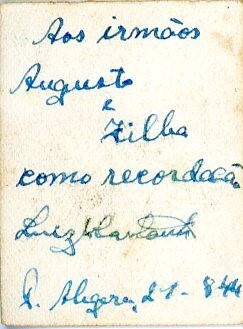 Aos irmãos
Augusto
e
Zilba
como recordação
Luiz
P. Alegre, 27-8-44